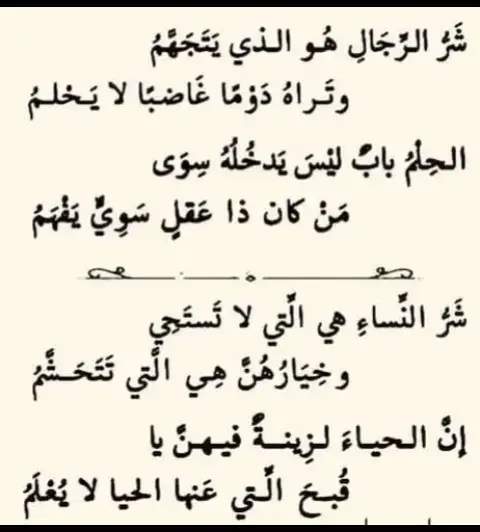 شَرُّ الرِّجَالِ هُو الذي يَتَجَهَّمُ
وتَراهُ دَوْمًا غَاضبًا لا يَحْلمُ
الحِلْمُ بابٌ ليْسَ يَدخُلُهُ سِوَى
مَنْ كان ذا عَقلٍ سَوِيٍّ يَفْهَمُ
شَرُّ النِّساءِ هي الَّتي لا تَستَحِي
وخِيَارُهُنَّ هِي الَّتي تَتَحَشَّمُ
إنَّ الحياءَ لزِينةٌ فيهنَّ يا
قُبحَ الَّتي عَنها الحيا لا يُعْلَمُ